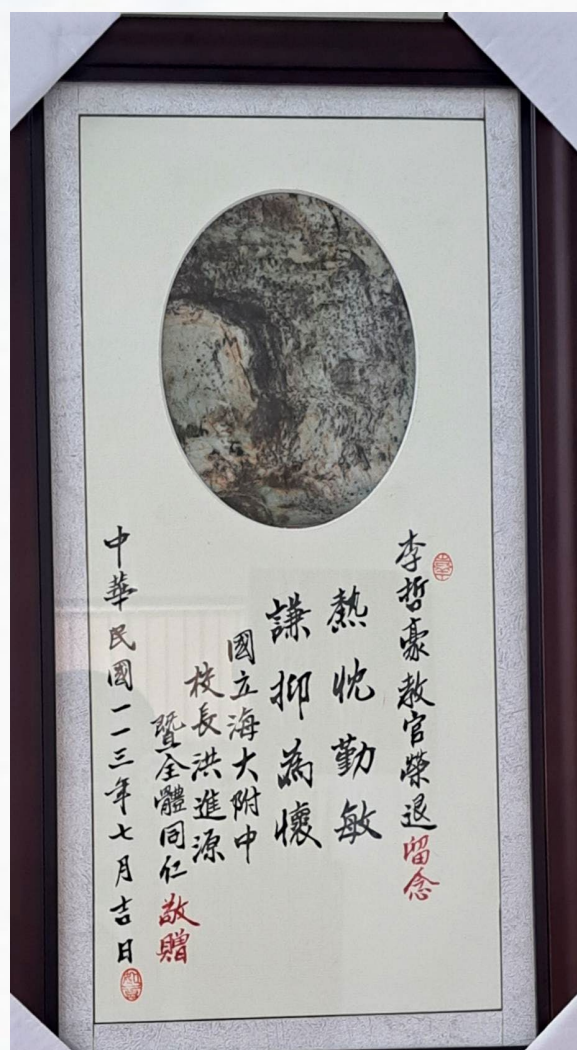 李哲豪教官榮退留念
熱忱勤敏
謙抑為懷
國立海大附中
校長洪進源
暨全體同仁敬贈
中華民國一一三年七月吉日